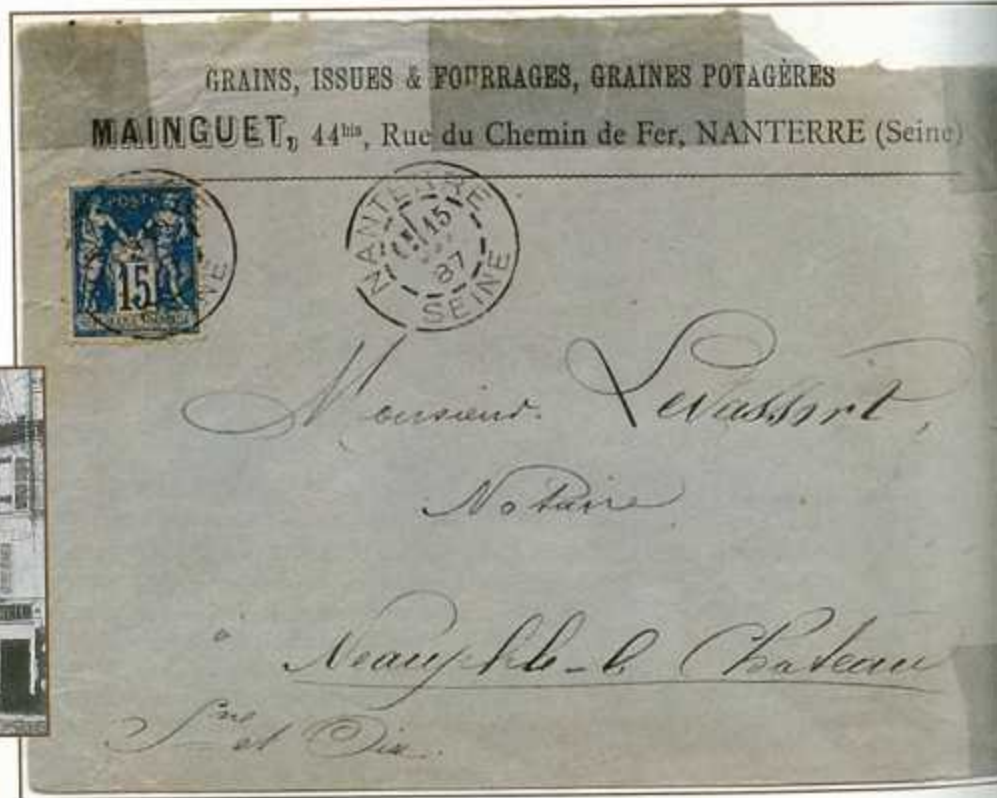 GRAINS, ISSUES & FOURRAGES, GRAINES POTAGÈRES
MAINGUET, 44bis, Rue du Chemin de Fer, NANTERRE (Seine)
POSTE
15
NE
NANTERRE
15
87
SEINE
Monsieur Levassort,
Notaire
à Neauphle-le Chateau
Sne et Oise.